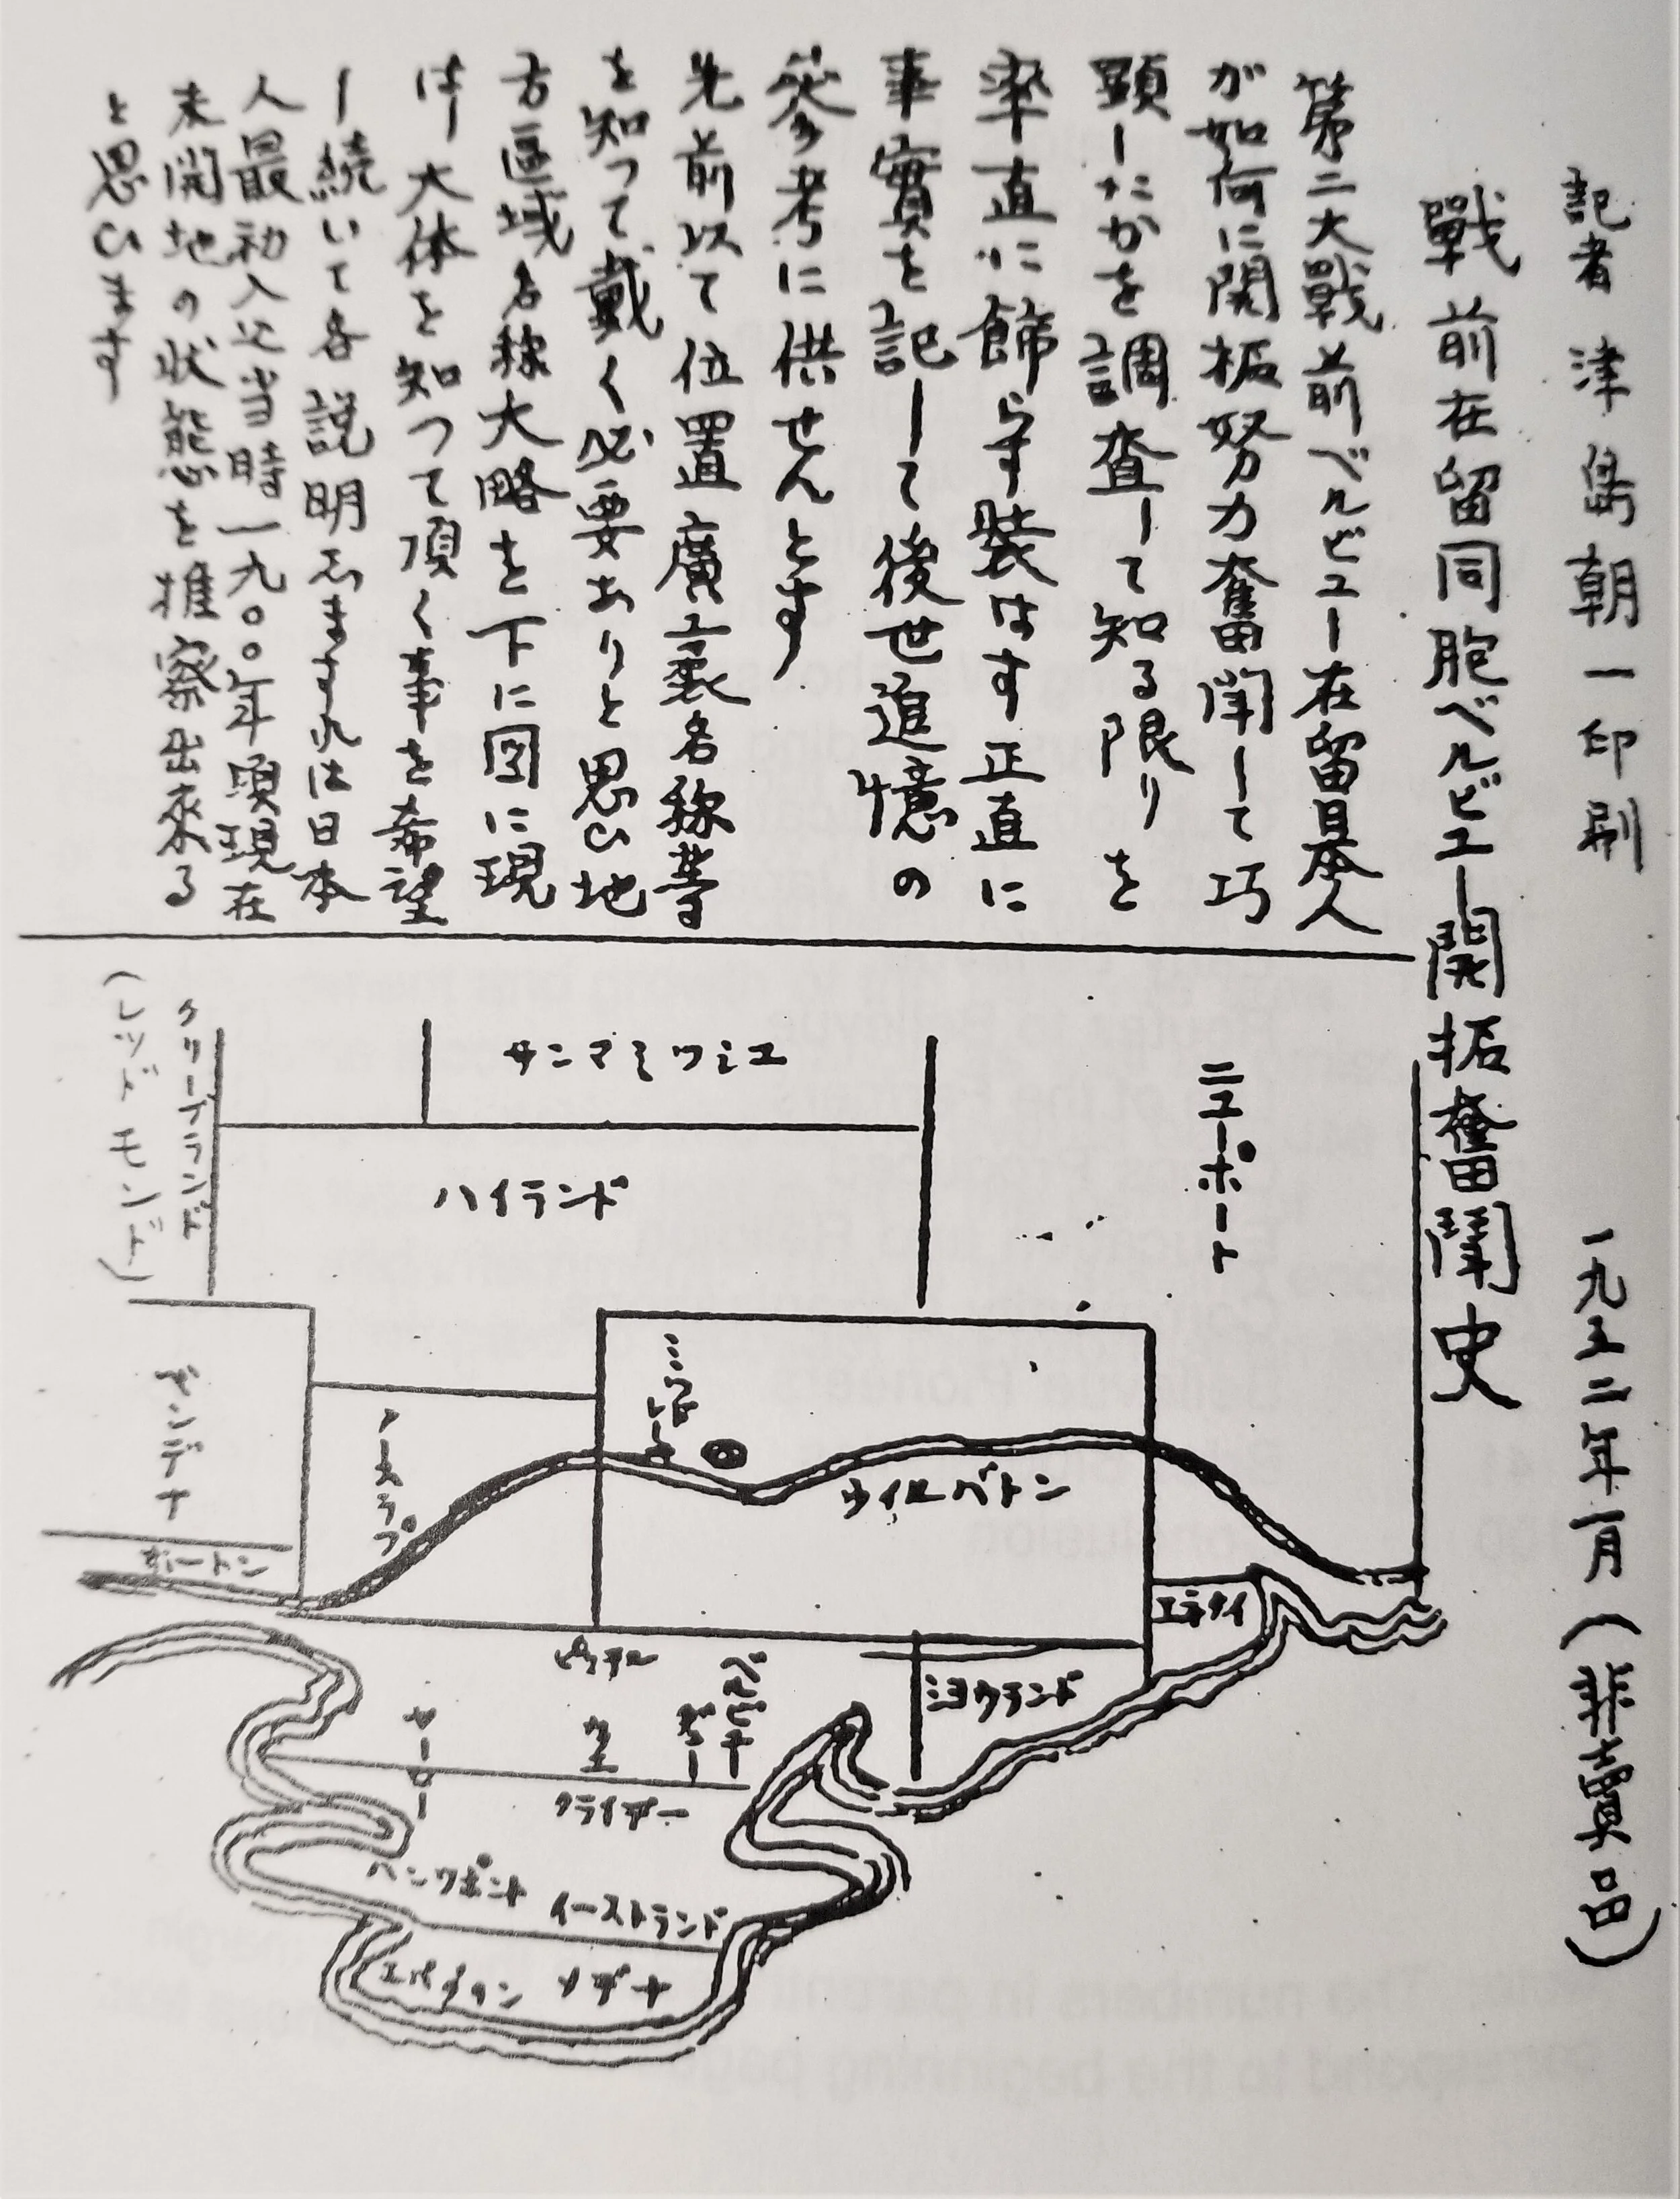 記者 津島朝一印刷 一九五二年一月(非賣品)
戰前在留同胞ベルビユー開拓奮闘史
第二大戰前ベルビユー在留日本人
が如何に開拓努力奮闘して巧
顕したかを調査して知る限りを
率直に飾らす装はす正直に
事實を記して後世追憶の
参考に供せんとす
先前以て位置廣袤名称等
を知って戴く必要ありと思ひ地
方區域名称大略を下に図に現
はし大体を知つて頂く事を希望
し続いて各説明しますれは日本
人最初入込当時一九〇〇年頃現在
未開地の状態を推察出來る
と思ひます
ニューポート
サンマミツシユ
ハイランド
クリーブランド
(レッドモンド)
ミツドレーキ
ウイルバトン
ノースラプ
ヤンデナ
ホートン
エネタイ
ミヨウランド
ピツテル
ベルビユー
ヤーロー
クライデー
ハンツポイント
イーストランド
メデナ